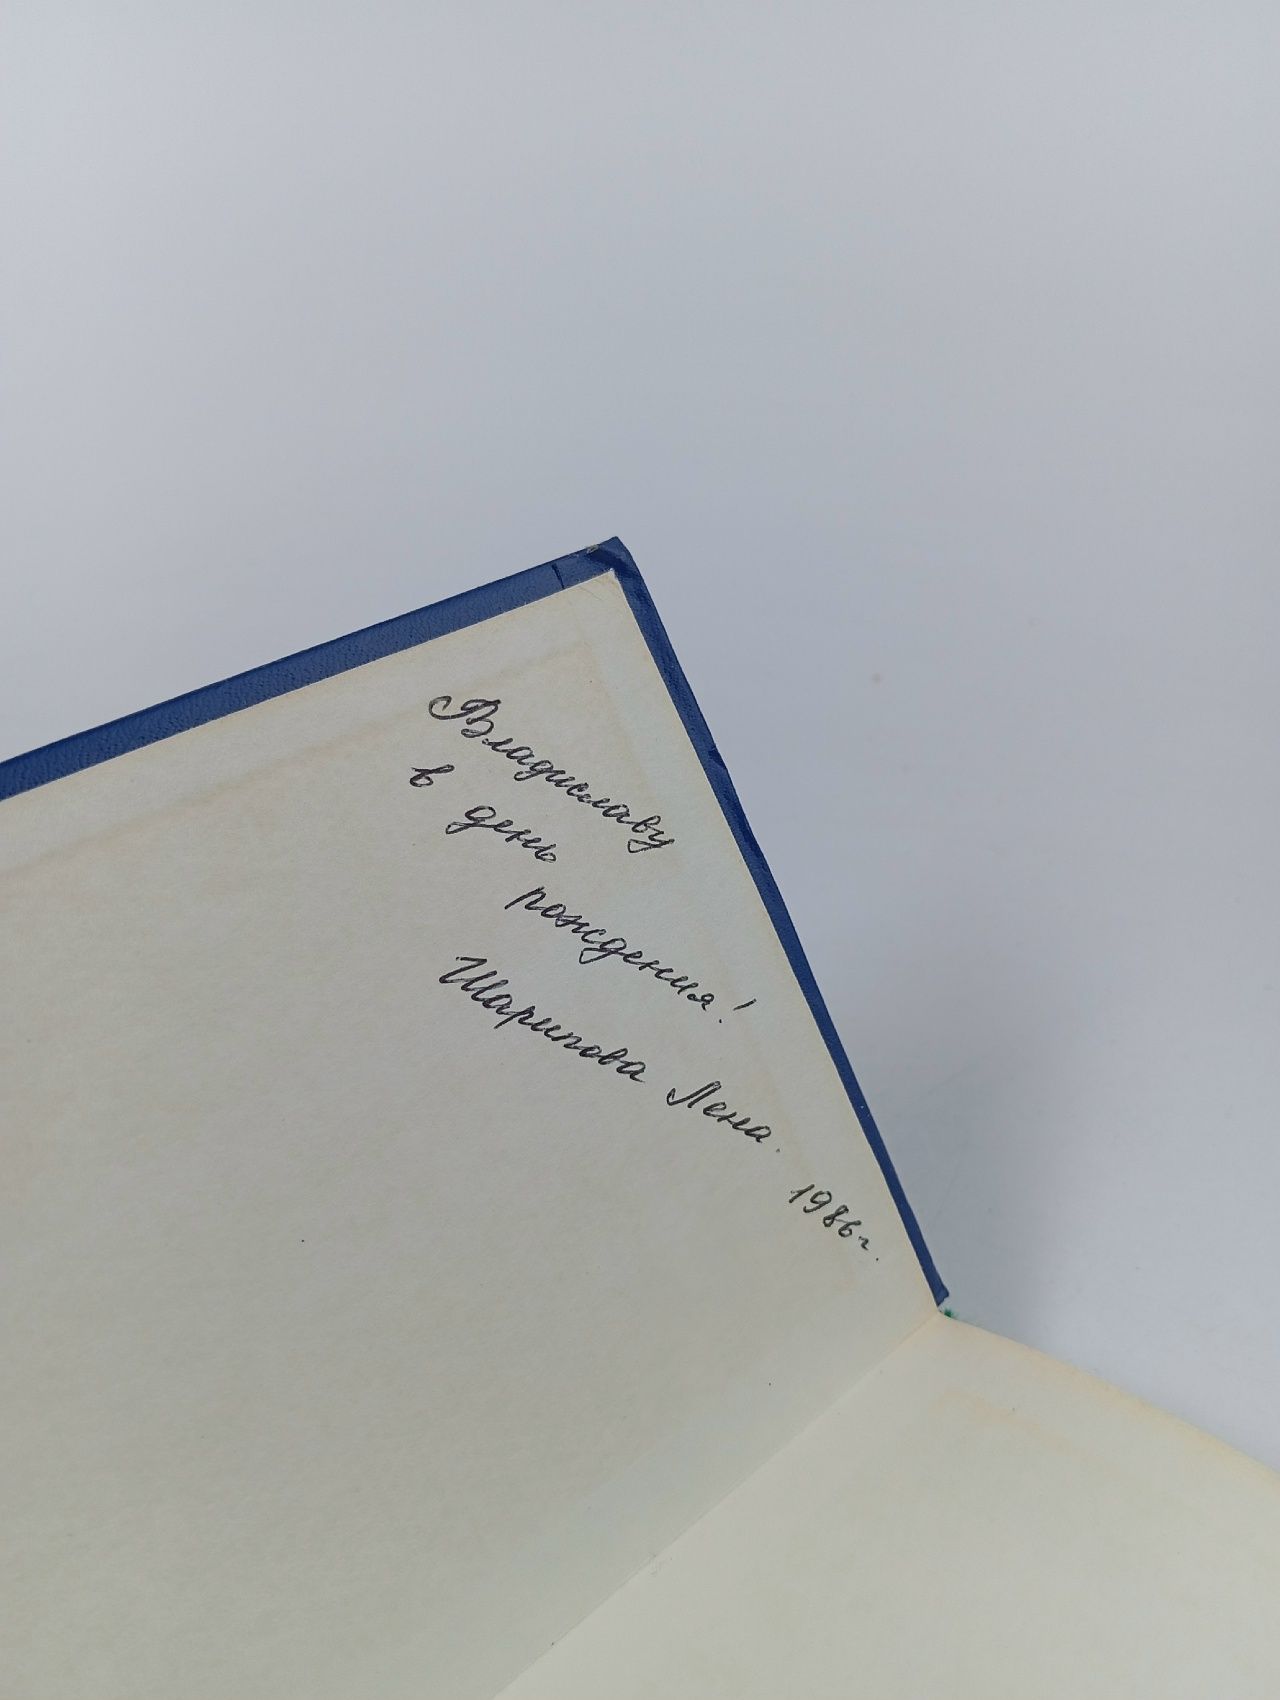 Владиславу
в день
рождения!
Шарипова Лена.
1986г.